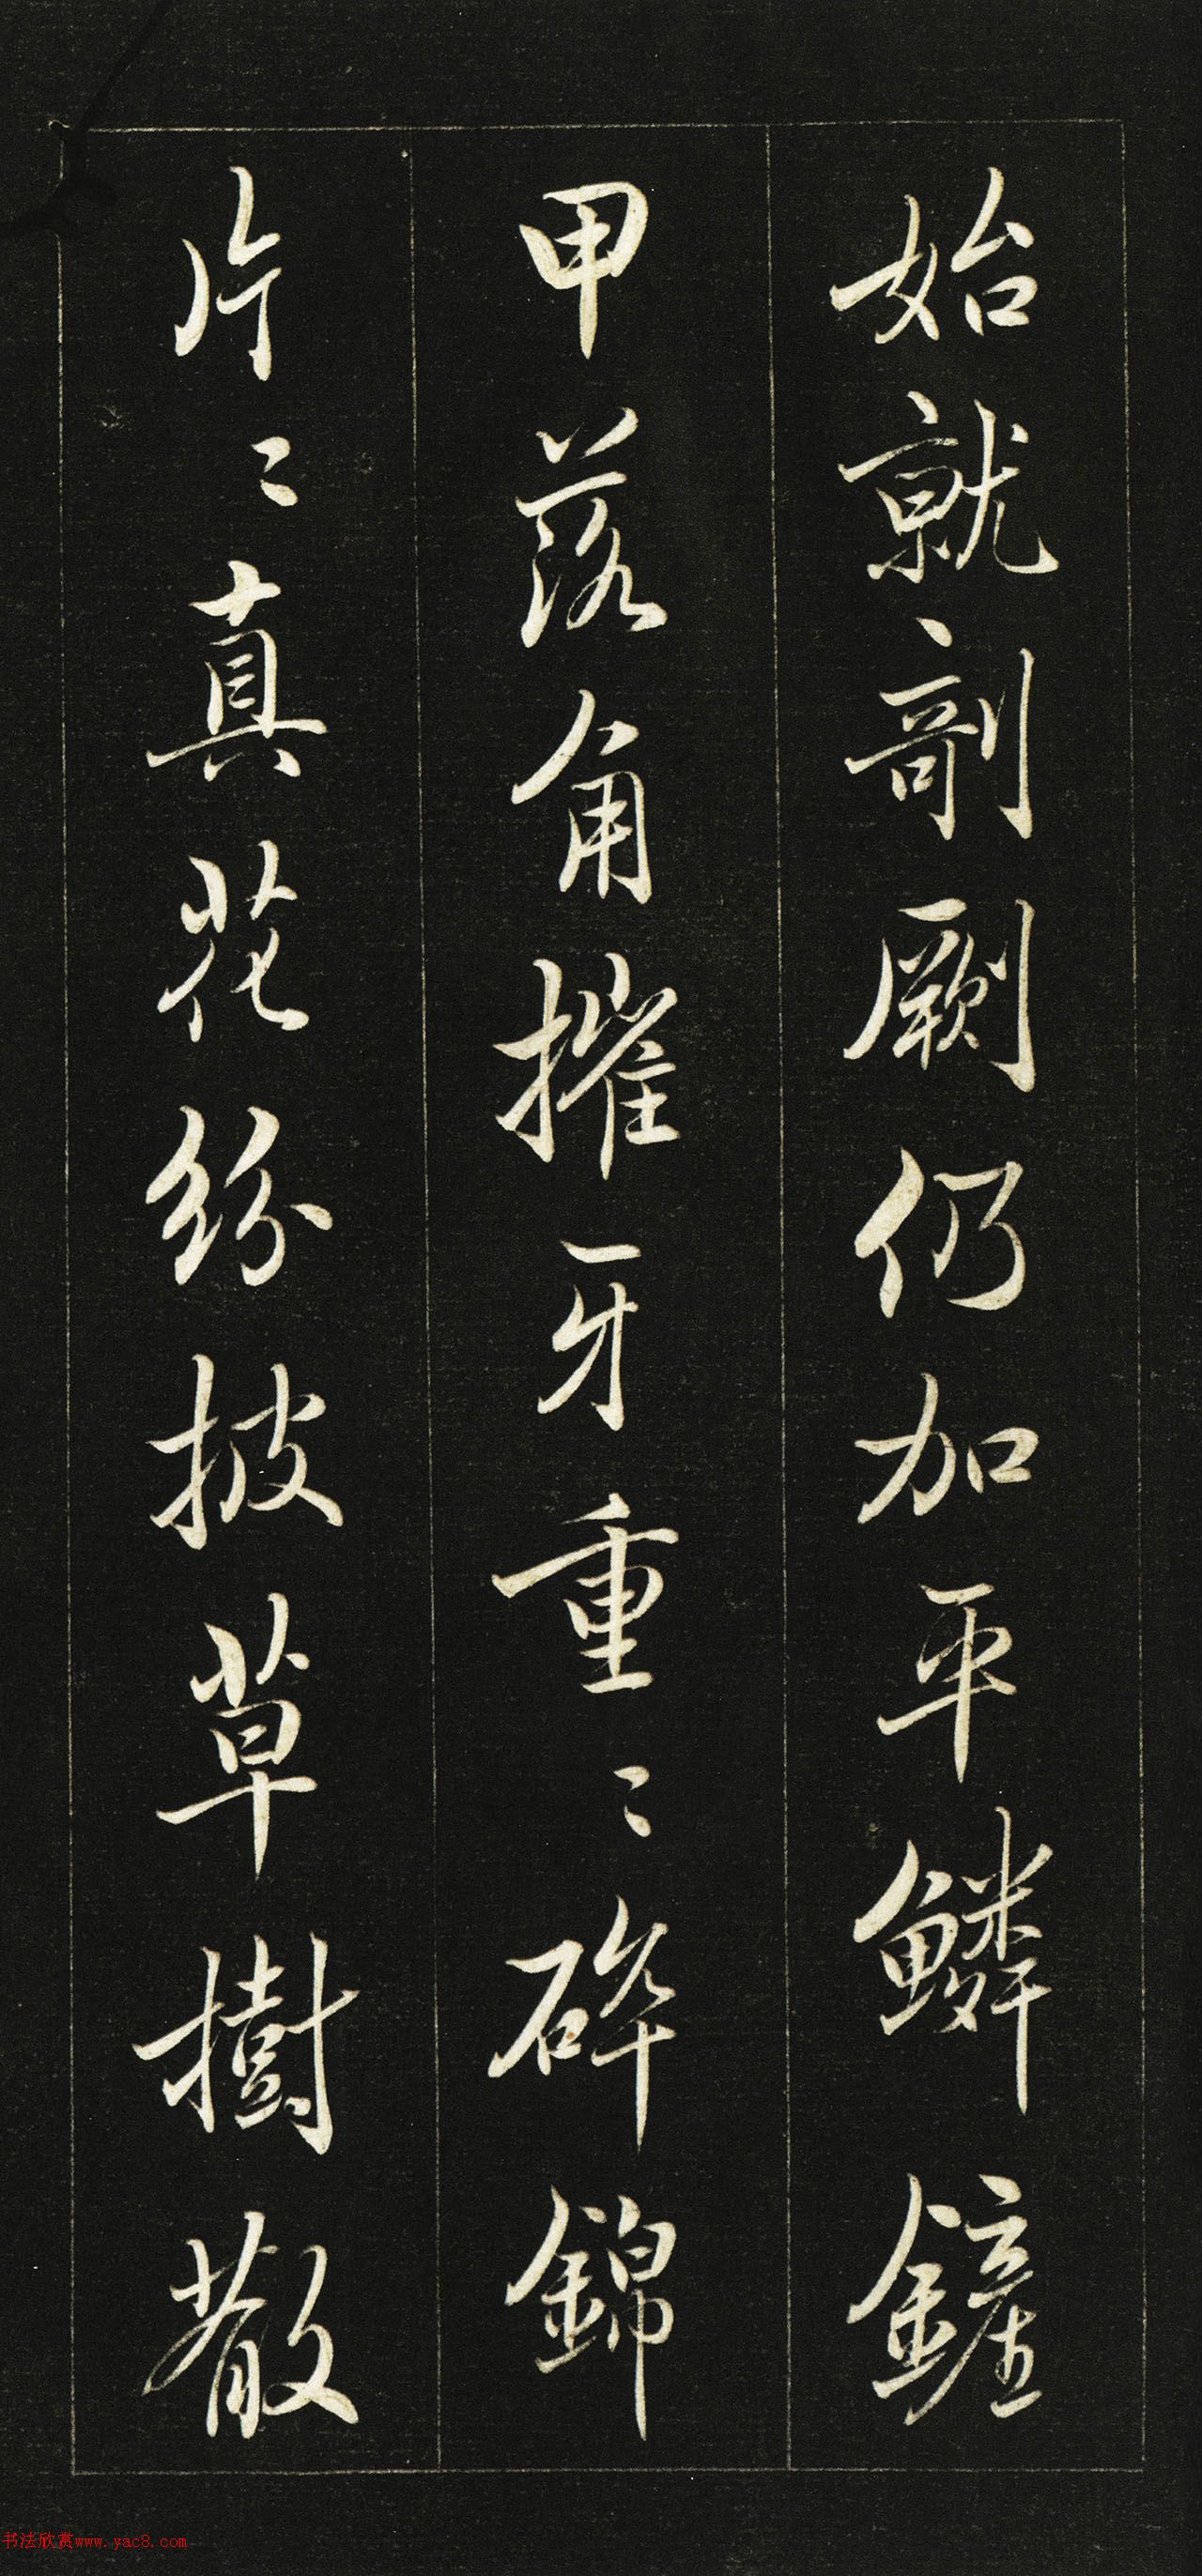 始就剞劂仍加平鱗鏟
甲落角摧牙重〻碎錦
片〻真花紛披草樹散
书法欣赏www.yac8.com